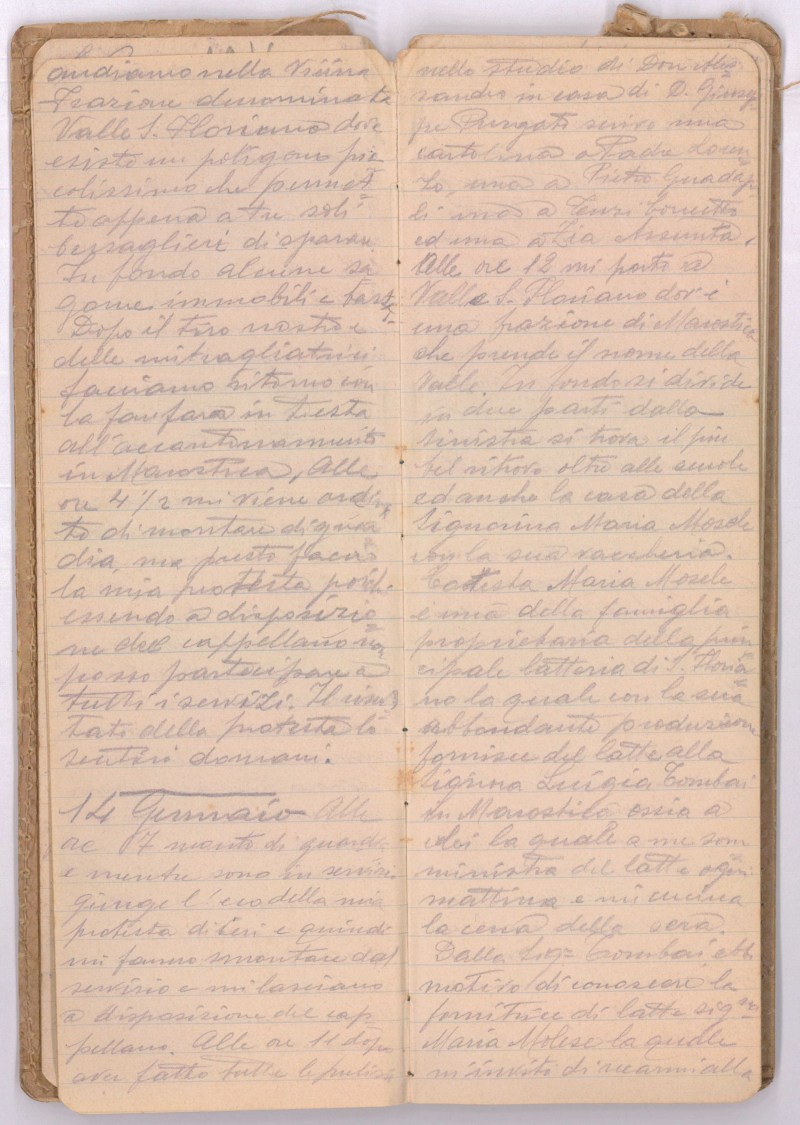 andiamo nella vicina
Frazione denominata
Valle S. Floriano dove
esiste un poligono pic
colissimo che permet
te appena a tre soli
bersaglieri di sparare.
In fondo alcune sa
gome immobili e basta.
Dopo il tiro nostro e
delle mitragliatrici
facciamo ritorno con
la fanfara in testa
all'accantonamento
in Marostica, Alle
ore 4 1/2 mi viene ordi
to di montare di guar
dia, ma presto faccio
la mia protesta poichè
essendo a disposizio
ne del cappellano non
posso partecipare a
tutti i servizi. Il risul
tato della protesta lo
sentirò domani.
14 Gennaio Alle
ore 7 monto di guardia
e mentre sono in servizio
giunge l'eco della mia
protesta di ieri e quindi
mi fanno smontare dal
servizio e mi lasciano
a disposizione del cap
pellano. Alle ore 11 dopo
aver fatto tutte le pulizie
nello studio di Don Ales
sandro in casa di D. Giusep
pe Pungato scrivo una
cartolina a Padre Loren
zo, una a Pietro Guadag
li una a Tenzi
ed una a Zia Assunta.
Alle ore 12 mi porto a
Valle S. Floriano dov'è
una frazione di Marostica
che prende il nome della
Valle. In fondo si divide
in due parti dalla
sinistra si trova il più
bel ritrovo oltre alle scuole
ed anche la casa della
Signorina Maria Mosele
con la sua vaccheria.
Codesta Maria Mosele
è una della famiglia
proprietaria della prin
cipale latteria di S. Floria
no la quale con la sua
abbondante produzione
fornisce del latte alla
signora Luigia Tombai
in Marostica ossia a
colei la quale a me som
ministra del latte ogni
mattina e mi cucina
la cena della sera.
Dalla Sigra Tombai ebbi
motivo di conoscere la
fornitrice di latte sigra
Maria Molese la quale
m'invitò di recarmi alla